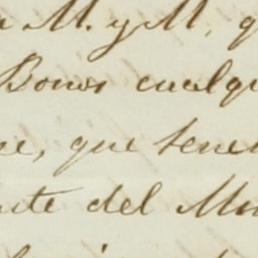 a M. y M, q
Bonos cualqu
ne, que tene
nte del Mu